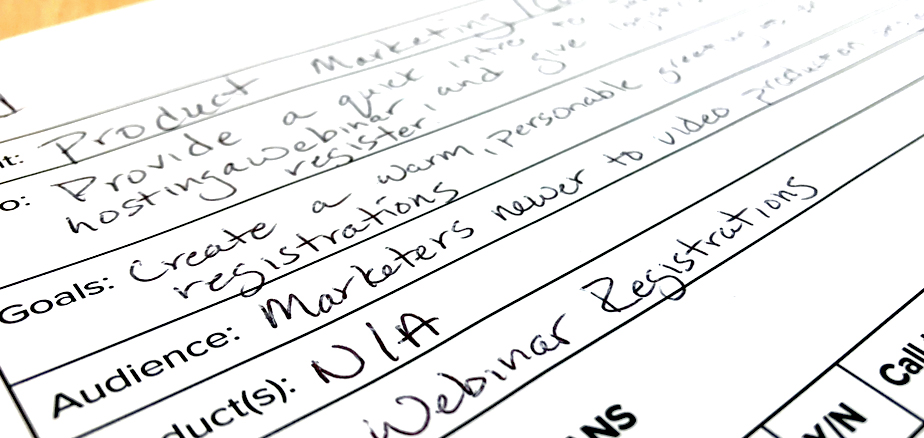 t: Product Marketing
o: Provide a quick intro to
hosting a webinar, and give
register.
Goals: Create a warm, personable
registrations
Audience: Marketers newer to video production
duct(s): N/A
Webinar Registrations
NS
Y/N
Call